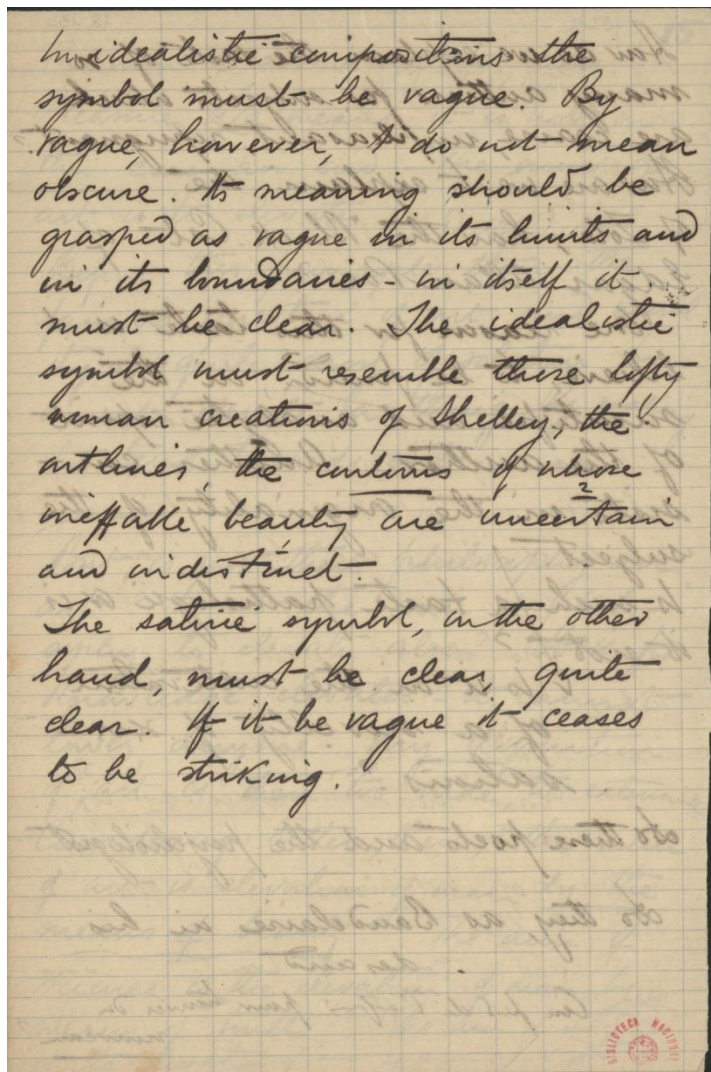 In idealistic compositions the
symbol must be vague. By
vague, however, I do not mean
obscure. Its meaning should be
grasped as vague in its limits and
in its boundaries - in itself it
must be clear. The idealistic
symbol must resemble those lofty
woman creations of Shelley, the
outlines, the contours of whose
ineffable beauty are uncertain
and indistinct.
The satiric symbol, on the other
hand, must be clear, quite
clear. If it be vague it ceases
to be striking.
BIBLIOTECA NACIONAL